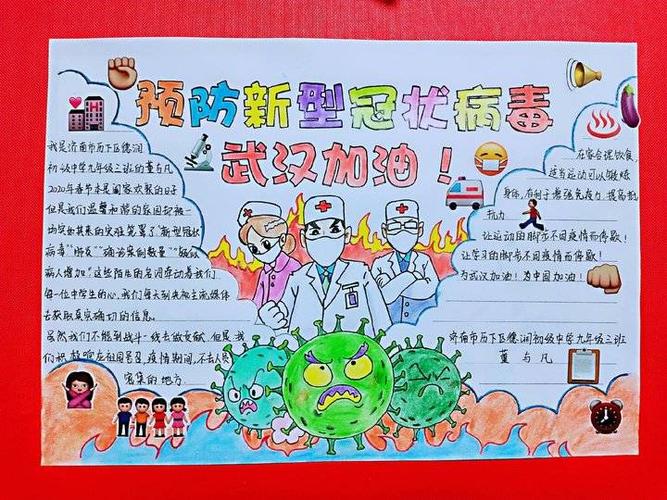 预防新型冠状病毒
武汉加油！
我是济南市历下区德润
初级中学九年级三班的董与凡
2020年春节本是阖家欢聚的日子
但是我们温馨和谐的家园却被一
场突如其来的灾难笼罩了“新型冠状
病毒”“肺炎”“确诊案例数量”“疑似
病人增加”这些陌生的名词牵动着我们
每一位中学生的心，我们每天到央视主流媒体
去获取真实确切的信息。
虽然我们不能到战斗一线去做贡献，但是我
们积极响应祖国号召，疫情期间，不去人员
密集的地方.
在家合理饮食，
适当运动可以锻炼
身体，有利于增强免疫力提高抵
抗力
让运动的脚步不因疫情而停歇！
让学习的脚步不因疫情而停歇！
为武汉加油！为中国加油！
济南市历下区德润初级中学九年级三班
董与凡